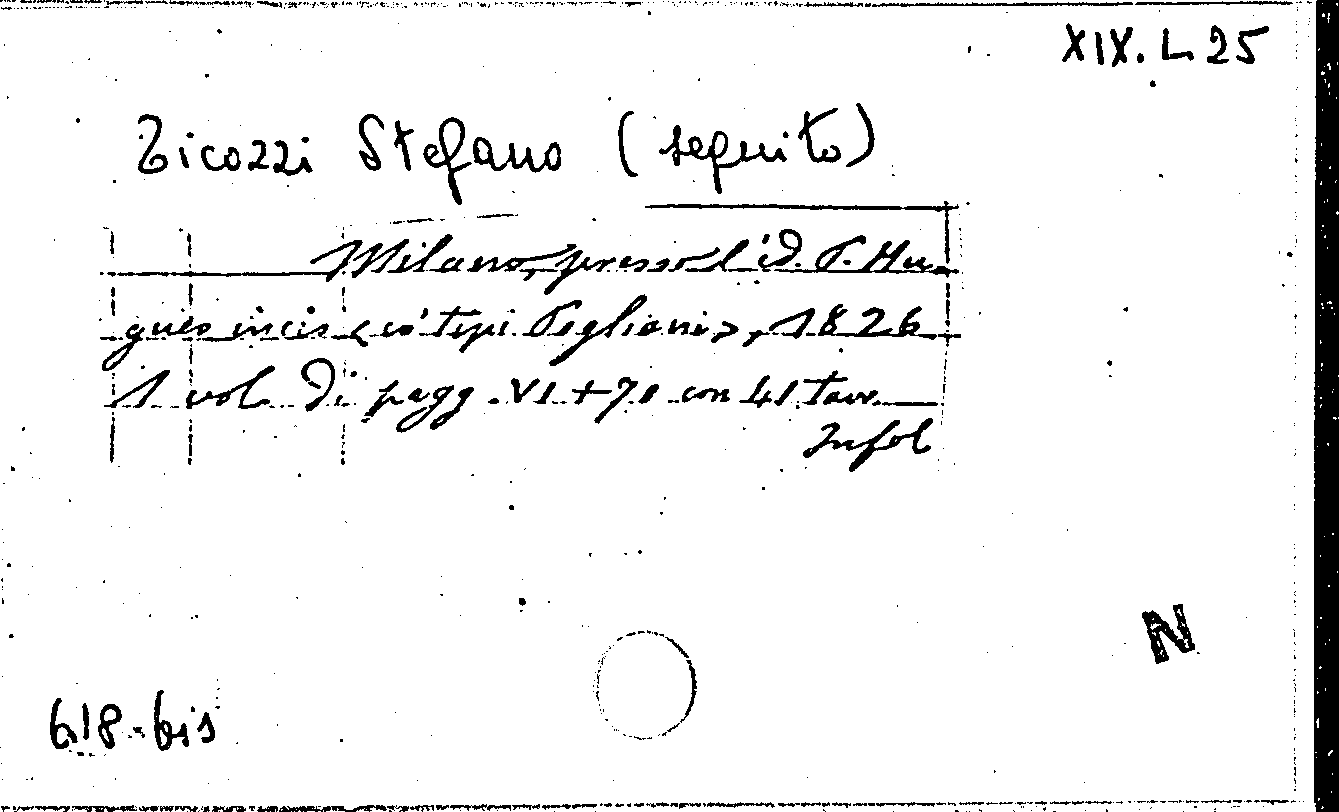 XIX. L 25
Ticozzi Stefano (seguito)
Milano, presso l'ed. P. Hu-
gues incis. <co' tipi Pogliani>, 1826
1 vol. di pagg. VI + 70 con 41 tavv.
In fol
N
618-bis